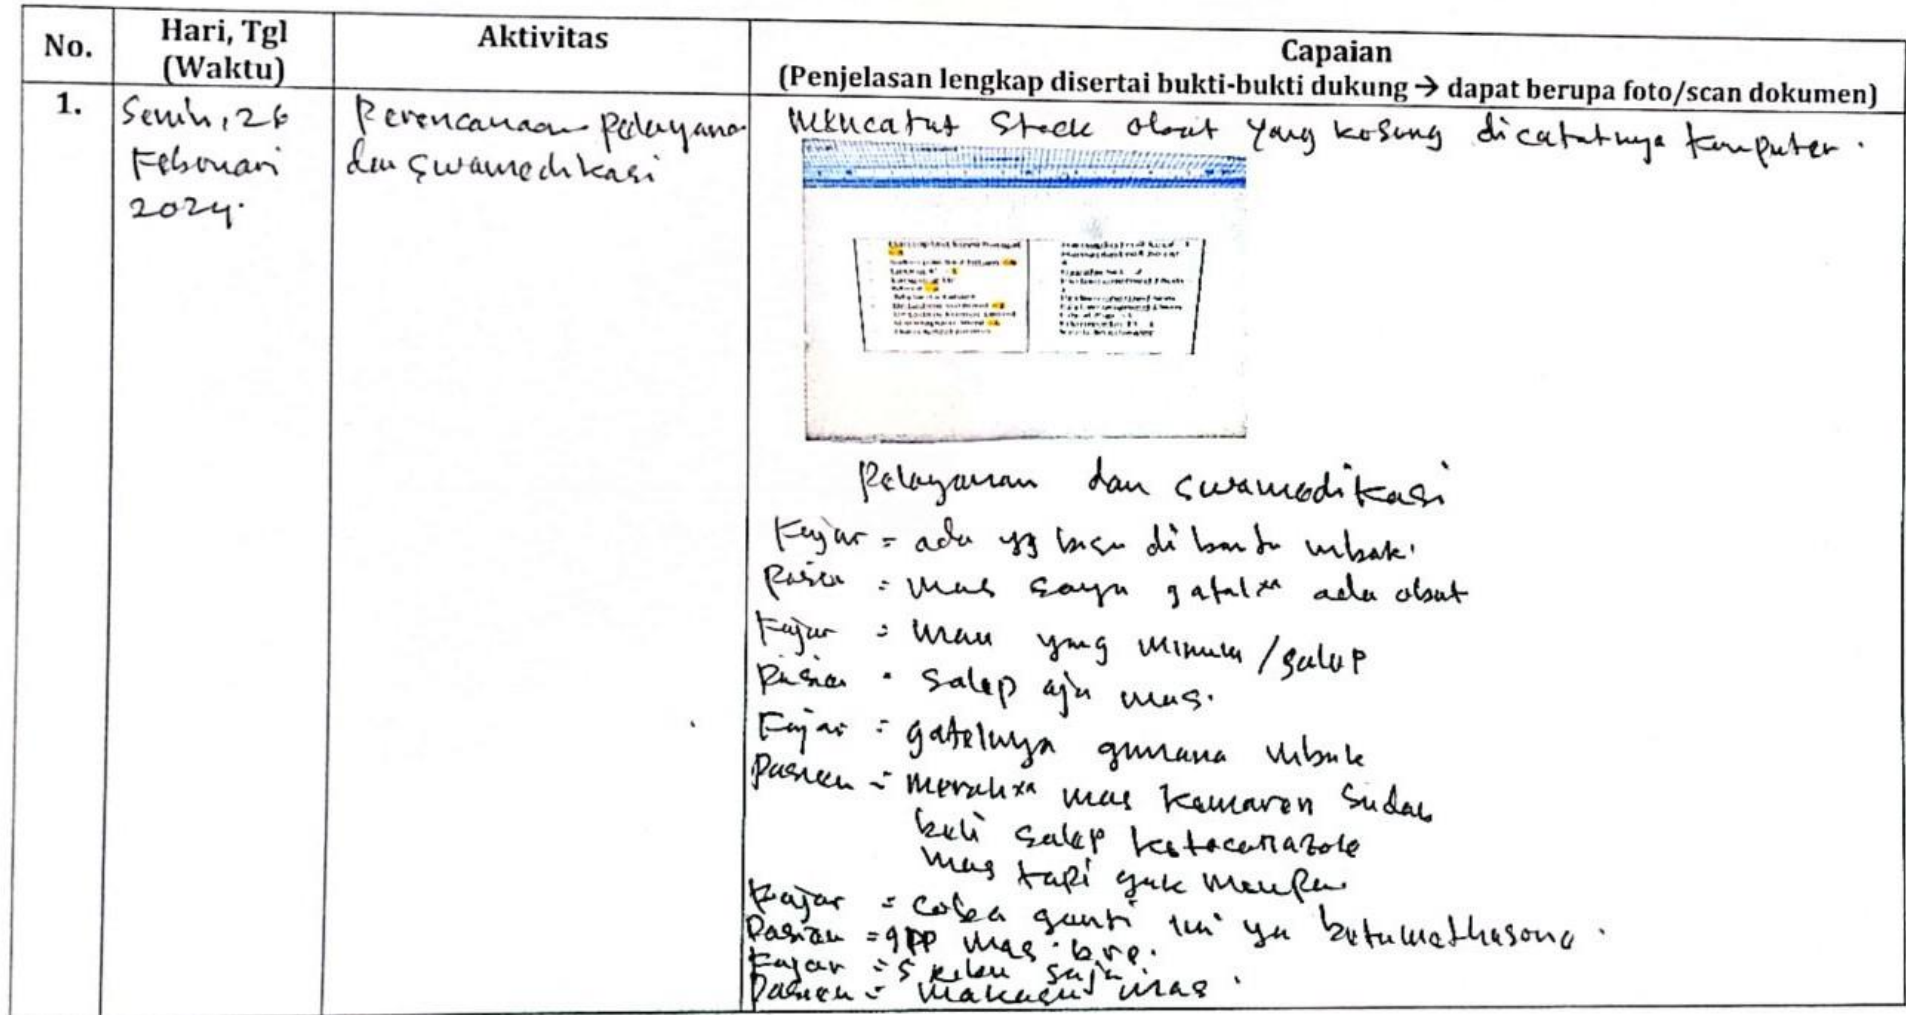 No.
Hari, Tgl
(Waktu)
Aktivitas
Capaian
(Penjelasan lengkap disertai bukti-bukti dukung → dapat berupa foto/scan dokumen)
1.
Senin, 26
Februari
2024.
Perencanaan pelayanan
dan swamedikasi
Mencatat Stock obat yang kosong dicatatnya komputer.
Pelayanan dan swamedikasi
Fajar = ada yg bisa dibantu mbak.
Pasien = Mas saya gatal" ada obat
Fajar = Mau yang minum / salep
Pasien = Salep aja mas.
Fajar = gatelnya gimana mbak
Pasien = Merah" mas kemaren sudah
beli salep ketoconazole
mas tapi gak mempan
Fajar = coba ganti ini ya betamethasone.
Pasien = gpp mas. brp.
Fajar = 5 ribu saja
Pasien = Makasih mas.